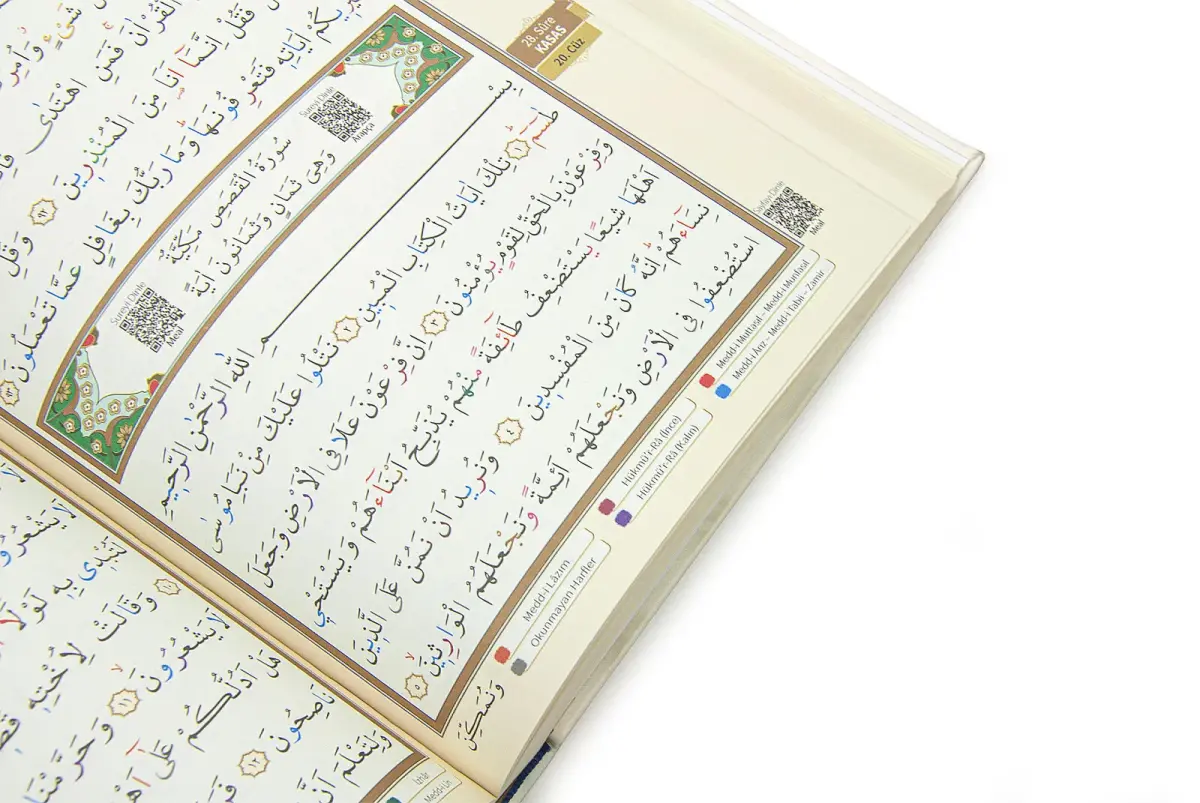 28. Sûre
KASAS
20. Cüz
وَاُمِرْتُ
الْقُرْاٰنَ فَمَنِ اهْتَدٰى
فَقُلْ اِنَّمَٓا اَنَا۬ مِنَ الْمُنْذِرٖينَ ﴿٩٢﴾ وَقُلِ
سَيُرٖيكُمْ اٰيَاتِهٖ فَتَعْرِفُونَهَاۜ وَمَا رَبُّكَ بِغَافِلٍ عَمَّا تَعْمَلُونَ ﴿٩٣﴾
Sureyi Dinle
Arapça
سُورَةُ الْقَصَصِ مَكِّيَّةٌ
وَهِيَ ثَمَانٍ وَثَمَانُونَ اٰيَةً
Sureyi Dinle
Meal
بِسْمِ اللّٰهِ الرَّحْمٰنِ الرَّحٖيمِ
طٰسٓمٓ ﴿١﴾ تِلْكَ اٰيَاتُ الْكِتَابِ الْمُبٖينِ ﴿٢﴾ نَتْلُوا عَلَيْكَ مِنْ نَبَأِ مُوسٰى
وَفِرْعَوْنَ بِالْحَقِّ لِقَوْمٍ يُؤْمِنُونَ ﴿٣﴾ اِنَّ فِرْعَوْنَ عَلَا فِي الْاَرْضِ وَجَعَلَ
اَهْلَهَا شِيَعًا يَسْتَضْعِفُ طَٓائِفَةً مِنْهُمْ يُذَبِّحُ اَبْنَٓاءَهُمْ وَيَسْتَحْيٖ
نِسَٓاءَهُمْۜ اِنَّهُ كَانَ مِنَ الْمُفْسِدٖينَ ﴿٤﴾ وَنُرٖيدُ اَنْ نَمُنَّ عَلَى الَّذٖينَ
اسْتُضْعِفُوا فِي الْاَرْضِ وَنَجْعَلَهُمْ اَئِمَّةً وَنَجْعَلَهُمُ الْوَارِثٖينَۙ ﴿٥﴾
وَنُمَكِّنَ
Sayfayı Dinle
Meal
Medd-i Muttasıl – Medd-i Munfasıl
Medd-i Arız – Medd-i Tabii – Zamir
Hükmü'r-Râ (İnce)
Hükmü'r-Râ (Kalın)
Medd-i Lâzım
Okunmayan Harfler
لَا يَشْعُرُونَ
لَتُبْدٖي بِهٖ لَوْلَٓا
﴿١٠﴾ وَقَالَتْ لِاُخْتِهٖ
لَا يَشْعُرُونَۙ ﴿١١﴾ وَحَرَّمْنَا
هَلْ اَدُلُّكُمْ عَلٰٓى اَهْلِ
نَاصِحُونَ ﴿١٢﴾
وَلِتَعْلَمَ اَنَّ
İzhâr
Medd-i Lîn